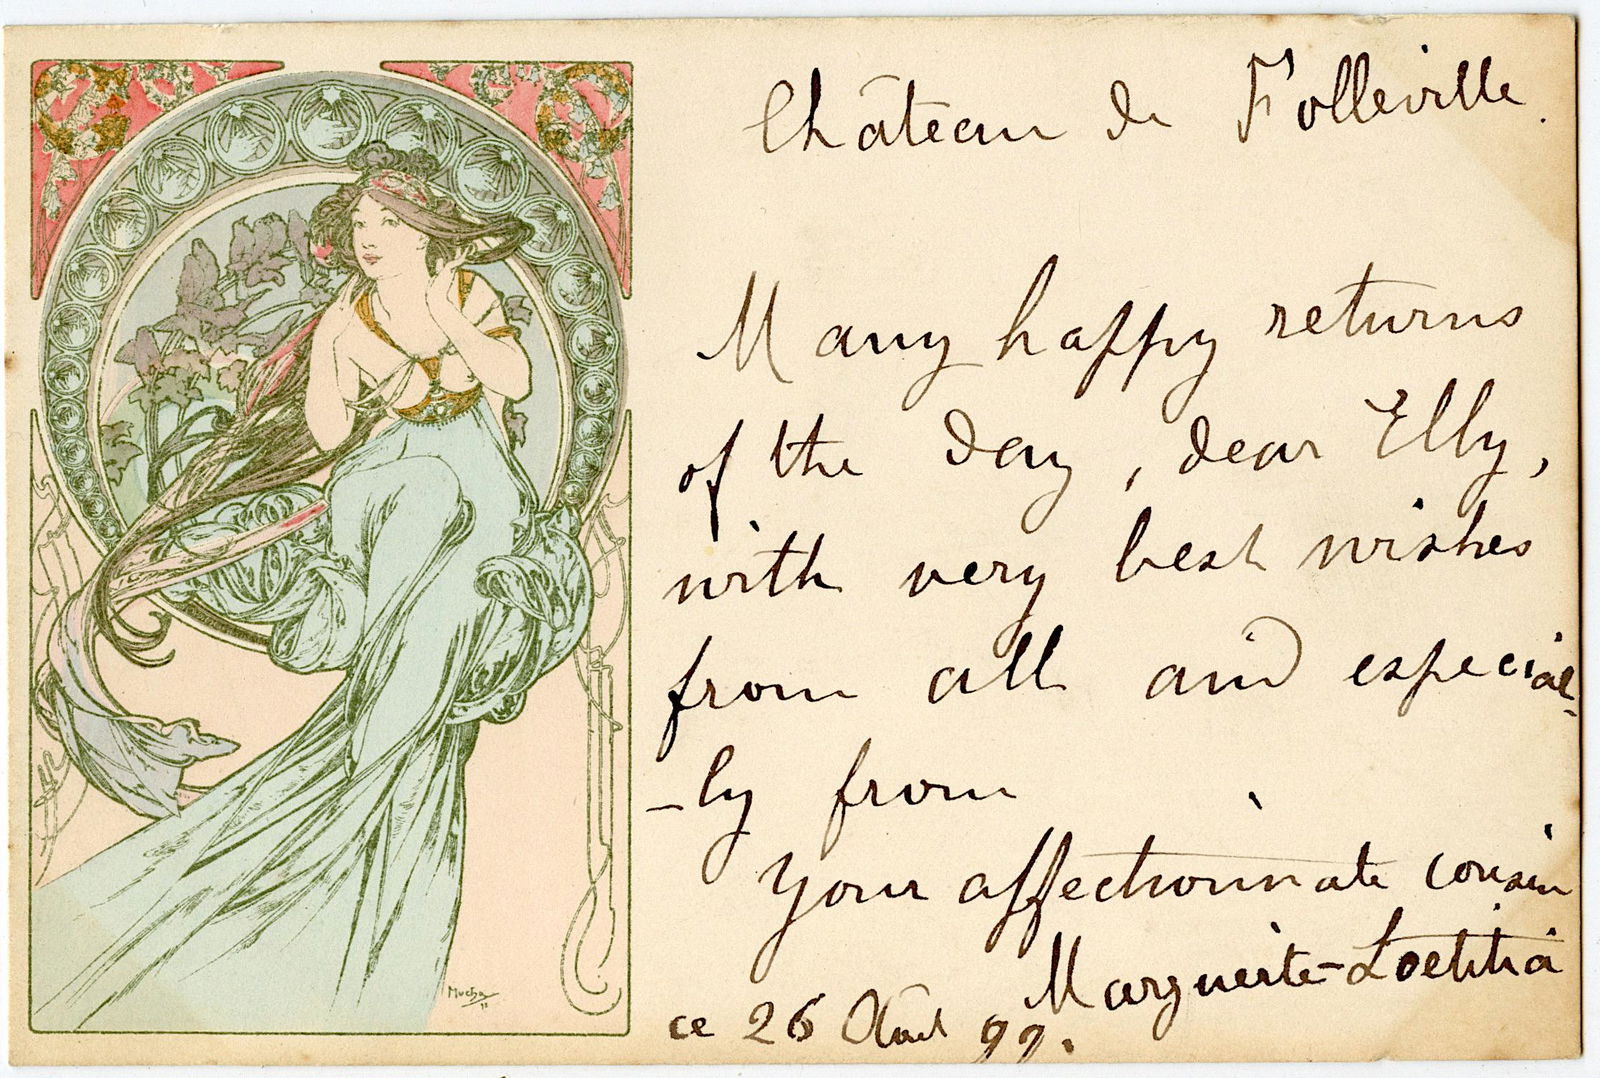 Château de Folleville.
Many happy returns
of the day, dear Elly,
with very best wishes
from all and especial-
-ly from
your affectionnate cousin
Marguerite-Loetitia
ce 26 Août 99.
Mucha